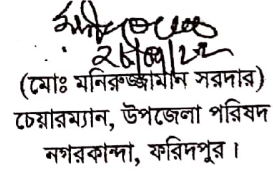 (মোঃ মনিরুজ্জামান সরদার)
চেয়ারম্যান, উপজেলা পরিষদ
নগরকান্দা, ফরিদপুর।